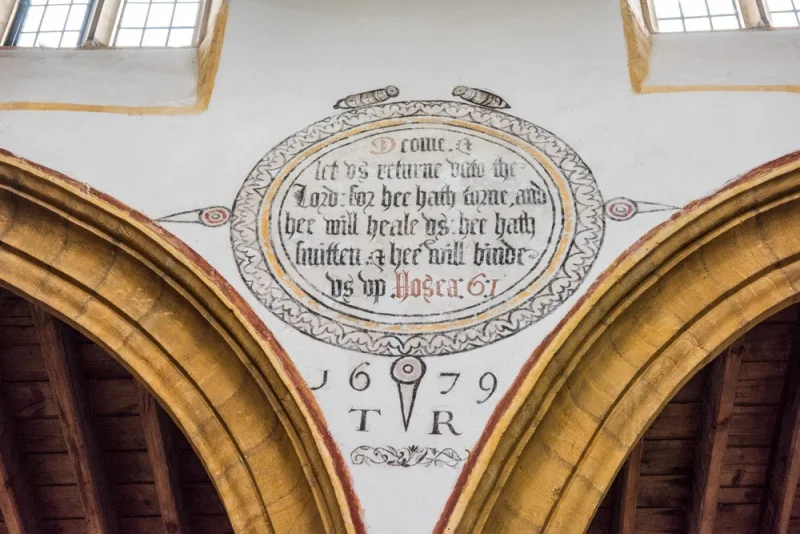 O come, &
let vs returne vnto the
Lord: for hee hath torne, and
hee will heale vs: hee hath
smitten, & hee will binde
vs vp. Hosea. 6:1
1679
T R